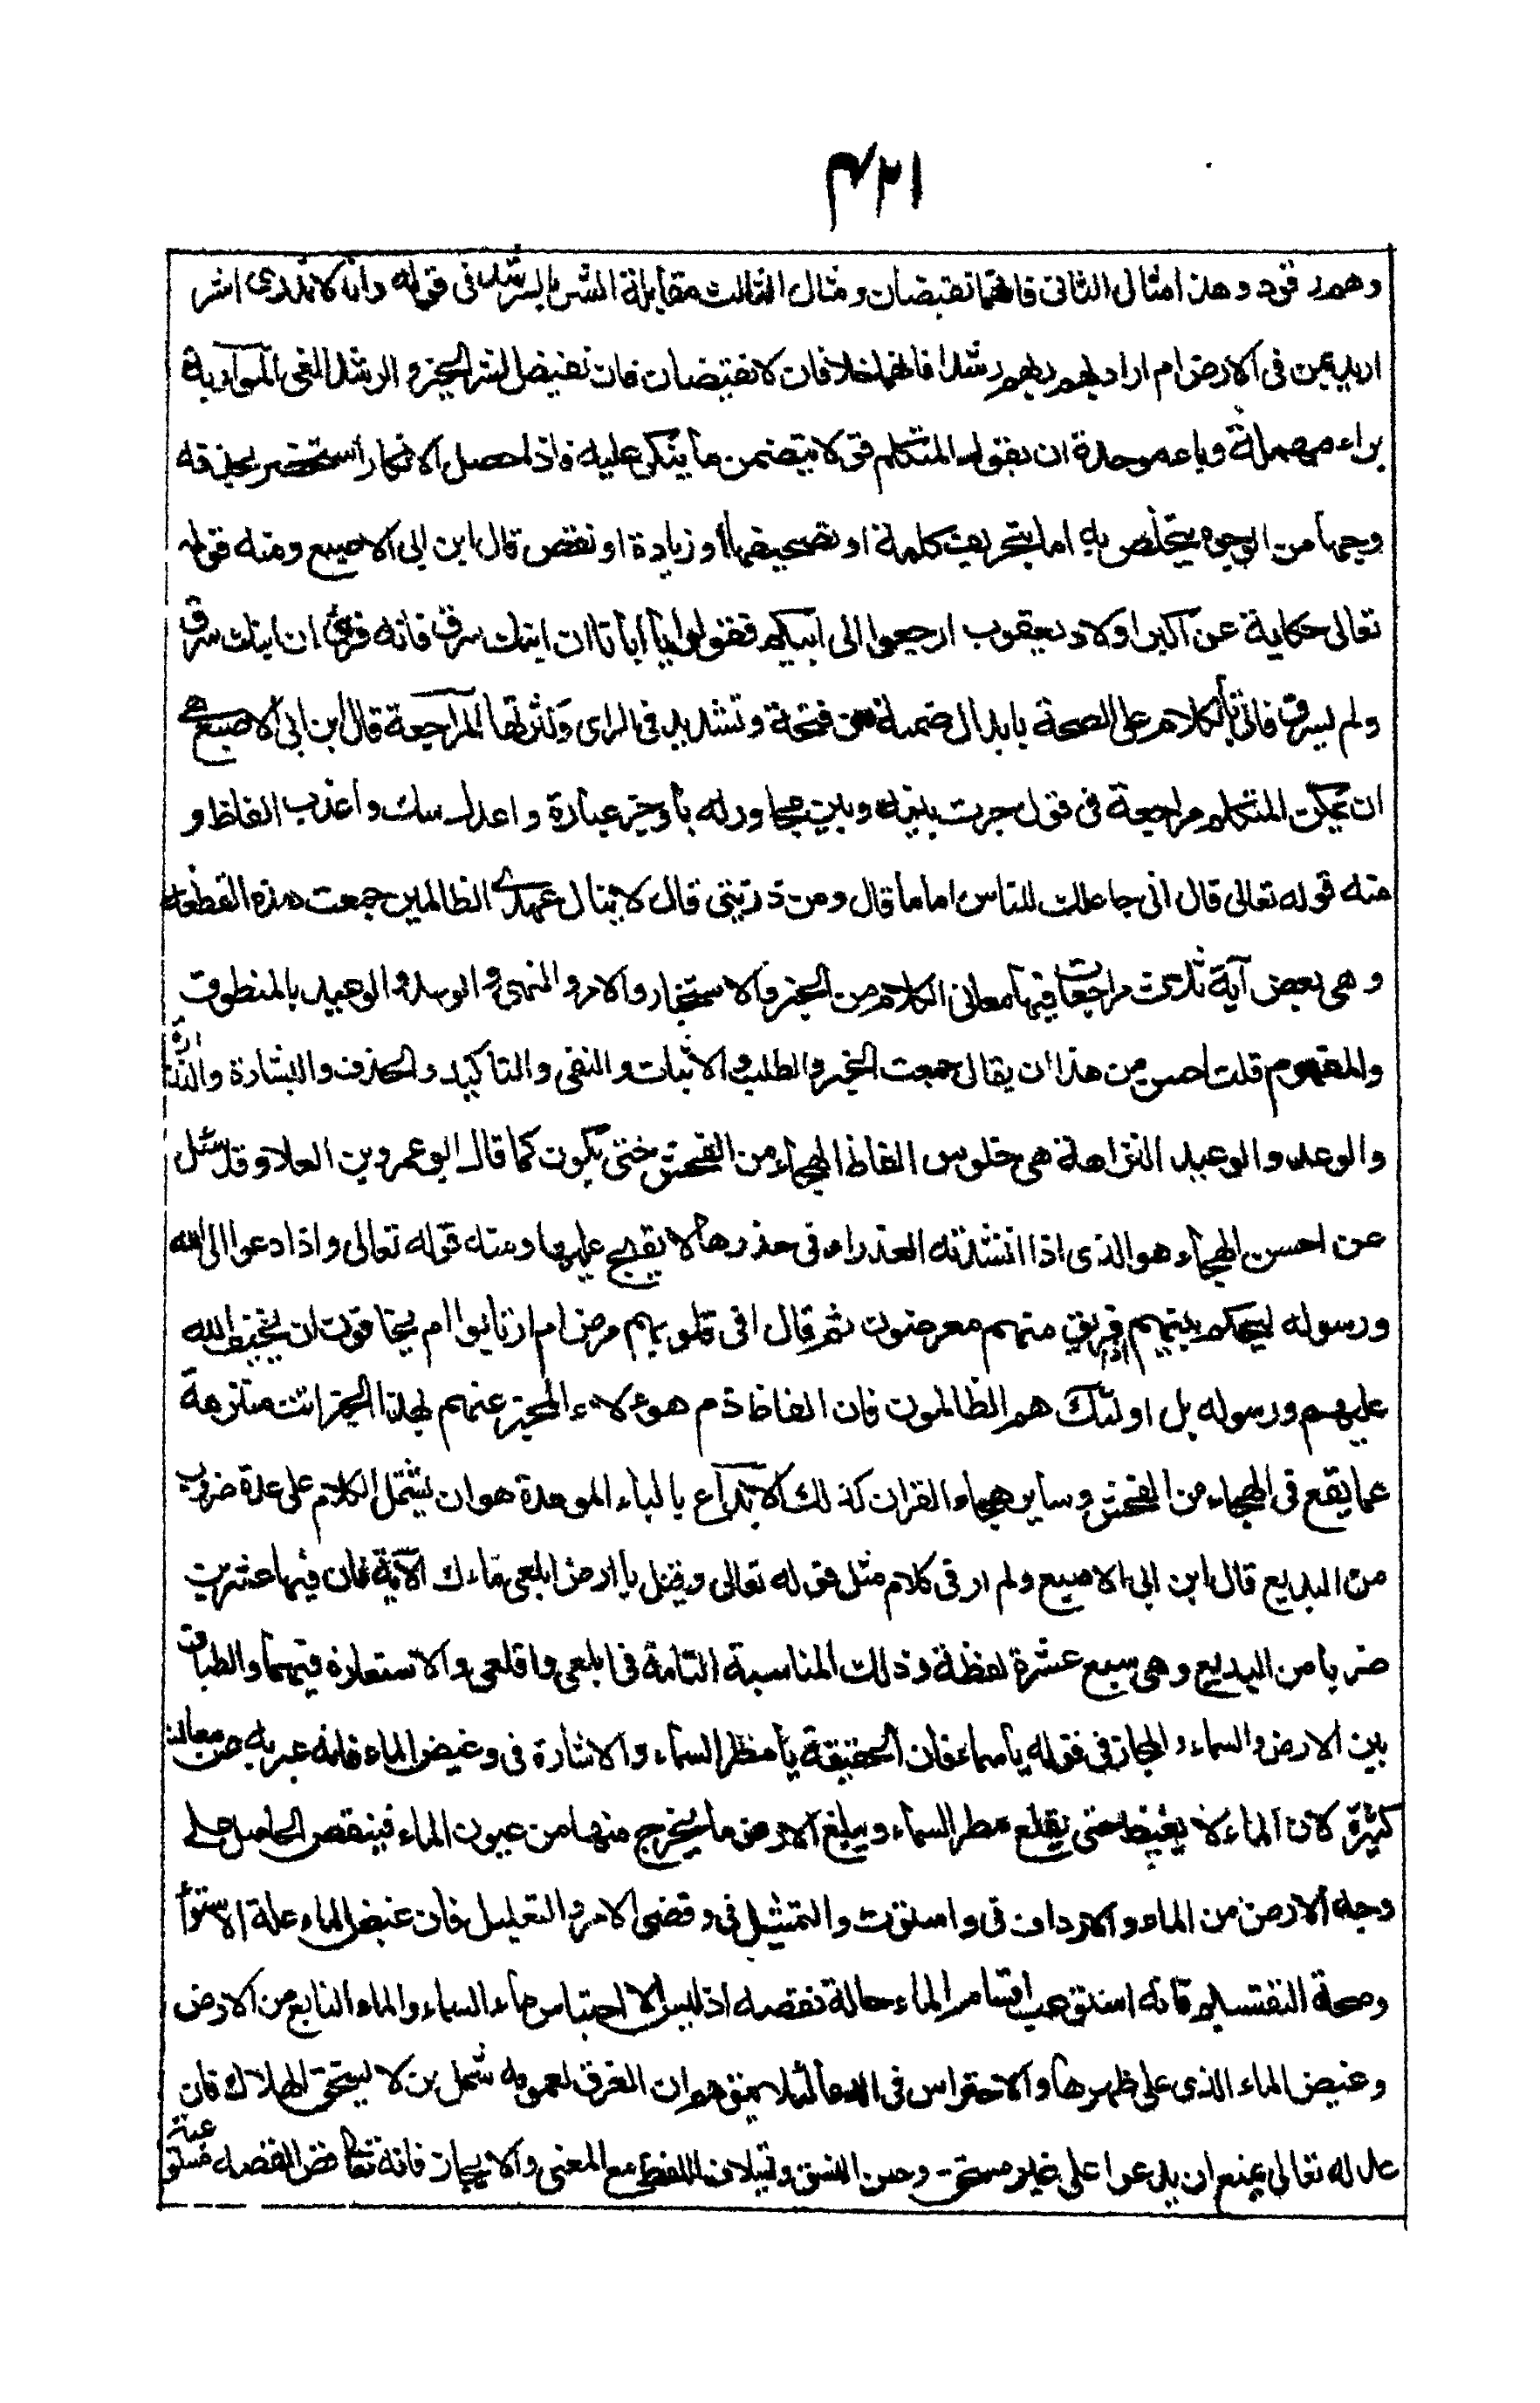 ٤٢١
وهم رقود وهذا مثال الثانى فانهما نقيضان ومثال الثالث مقابلة الشر بالرشد فى قوله وانا لا ندرى اشر
اريد بمن فى الارض ام اراد بهم ربهم رشدا فانهما خلافان لا نقيضان فان نقيض الشر الخير والرشد الغى المواربة
براء مهملة وباء موحدة ان يقول المتكلم قولا يتضمن ما ينكر عليه فاذا حصل الانكار استحضر بحذقه
وجها من الوجوه يتخلص به اما بتحريف كلمة او تصحيفها او زيادة او نقص قال ابن ابى الاصبع ومنه قوله
تعالى حكاية عن اكبر اولاد يعقوب ارجعوا الى ابيكم فقولوا يا ابانا ان ابنك سرق فانه قرئ ان ابنك سرق
ولم يسرق فاتى بالكلام على الصحة بابدال ضمة من فتحة وتشديد فى الراى وكثرتها المراجعة قال ابن ابى الاصبع هى
ان يحكى المتكلم مراجعة فى قول جرت بينه وبين محاور له باوجز عبارة واعدل سبك واعذب الفاظ و
منه قوله تعالى قال انى جاعلك للناس اماما قال ومن ذريتى قال لا ينال عهدى الظالمين جمعت هذه القطعة
وهى بعض آية ثلاث مراجعات فيها معانى الكلام من الخبر والاستخبار والامر والنهى والوعد والوعيد بالمنطوق
والمفهوم قلت احسن من هذا ان يقال جمعت الخبر والطلب والاثبات والنفى والتاكيد والحذف والبشارة والنذارة
والوعد والوعيد النزاهة هى خلوص الفاظ الهجاء من الفحش حتى يكون كما قال ابو عمرو بن العلاء وقد سئل
عن احسن الهجاء هو الذى اذا انشدته العذراء فى خدرها لا يقبح عليها ومنه قوله تعالى واذا دعوا الى الله
ورسوله ليحكم بينهم اذا فريق منهم معرضون ثم قال افى قلوبهم مرض ام ارتابوا ام يخافون ان يحيف الله
عليهم ورسوله بل اولئك هم الظالمون فان الفاظ ذم هؤلاء المخبر عنهم بهذا الخبر اتت منزهة
عما يقع فى الهجاء من الفحش وساير هجاء القران كذلك الابداع بالباء الموحدة هو ان يشتمل الكلام على عدة ضروب
من البديع قال ابن ابى الاصبع ولم ار فى كلام مثل قوله تعالى وقيل يا ارض ابلعى ماءك الآية فان فيها عشرين
ضربا من البديع وهى سبع عشرة لفظة وذلك المناسبة التامة فى ابلعى واقلعى والاستعارة فيهما والطباق
بين الارض والسماء والمجاز فى قوله يا سماء فان الحقيقة يا مطر السماء والاشارة فى وغيض الماء فانه عبر به عن معان
كثيرة لان الماء لا يغيض حتى يقلع مطر السماء ويبلع الارض ما يخرج منها من عيون الماء فينقص الحاصل على
وجه الارض من الماء والارداف فى واستوت والتمثيل فى وقضى الامر والتعليل فان غيض الماء علة الاستواء
وصحة التقسيم فانه استوعب اقسام الماء حالة نقصه اذ ليس الا احتباس ماء السماء والماء النابع من الارض
وغيض الماء الذى على ظهرها والاحتراس فى الدعا لئلا يتوهم ان الغرق لعمومه شمل من لا يستحق الهلاك فان
عدله تعالى يمنع ان يدعوا على غير مستحق وحسن النسق وتيلاف اللفظ مع المعنى والايجاز فانه تعالى قص القصه مستوعبة